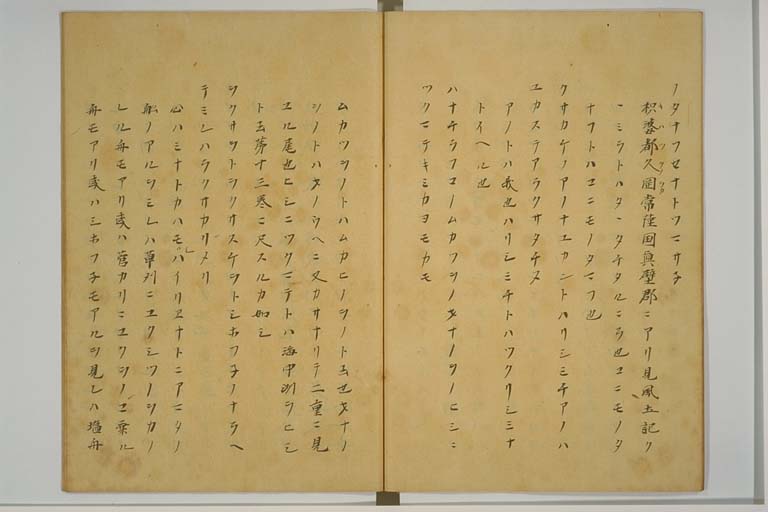 ノタナフセナトツニサチ
枳婆都久岡常陸国真壁郡ニアリ見風土記ク
ニミラトハタヽタチタルニラ也ヱニモノタ
ナフトハヱニモノタマフ也
クサカケノアノナユカントハリシミチアノハ
ユカステアラクサタチヌ
アノトハ我也ハリシミチトハツクリシミナ
トイヘル也
ハナチラフコノムカツヲノヲナノヲノヒシニ
ツクマテキミカヨモカモ
ムカツヲノトハムカヒノヲノト云也ヲナノ
ヲノトハヲノウヘニ又カサナリテ二重ニ見
ユル尾也ヒシニツクマテトハ海中洲ヲヒシ
ト云第十三巻ニ尺スルカ如シ
ヲクサヲトヲクサスケヲトシホフネノナラヘ
テミレハヲクサカリメリ
心ハミナトカハモシハイリエナトニアマタノ
船ノアルヲミレハ葦刈ニユクシツノヲカノ
レル舟モアリ或ハ菅カリニユクシノヲ乗ル
舟モアリ或ハシホフネモアルヲ見レハ塩舟